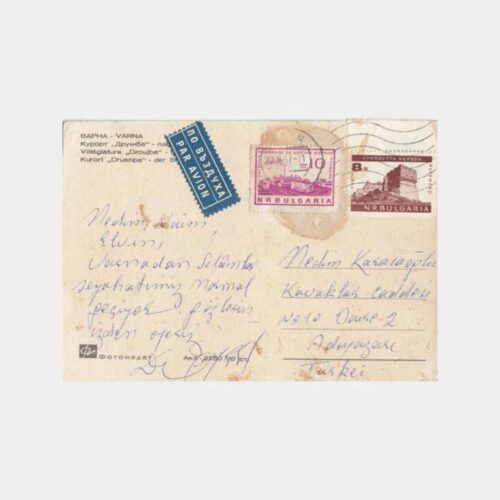 ВАРНА - VARNA
Курорт "Дружба" -
Villégiature "Droujba" -
Kurort "Drushba" - der
ПО ВЪЗДУХА
PAR AVION
10
NRBULGARIA
КРЕПОСТТА ЧЕРВЕН
8
NRBULGARIA
Nedim, Naimi
Elvin,
Varnadan Selâmlar
seyahatımız normal
geçiyor gözlerin
izden öperiz
Nedim Karaaoğlu
Kavaklar caddesi
No 10 Daire-2
Adapazarı
Türkei
Фотоиздат